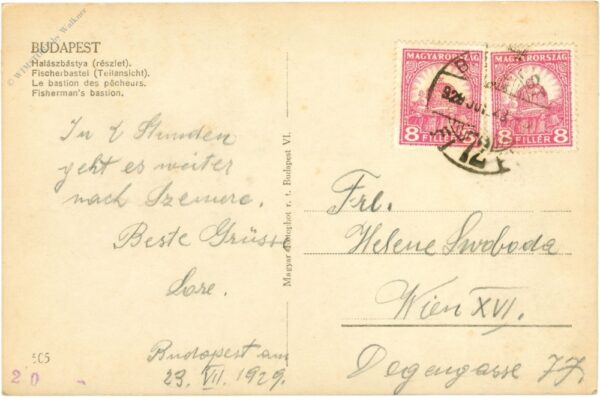 BUDAPEST
Halászbástya (részlet).
Fischerbastei (Teilansicht).
Le bastion des pêcheurs.
Fisherman's bastion.
In 1 Stunden
geht es weiter
nach Szemere.
Beste Grüsse
Lore.
Budapest am
23. VII. 1929.
505
20 -
Magyar r. t. Budapest VI.
MAGYARORSZÁG
8 FILLÉR 8
MAGYARORSZÁG
8 FILLÉR 8
72
Frl.
Helene Swoboda
Wien XVI.
Degengasse 77.